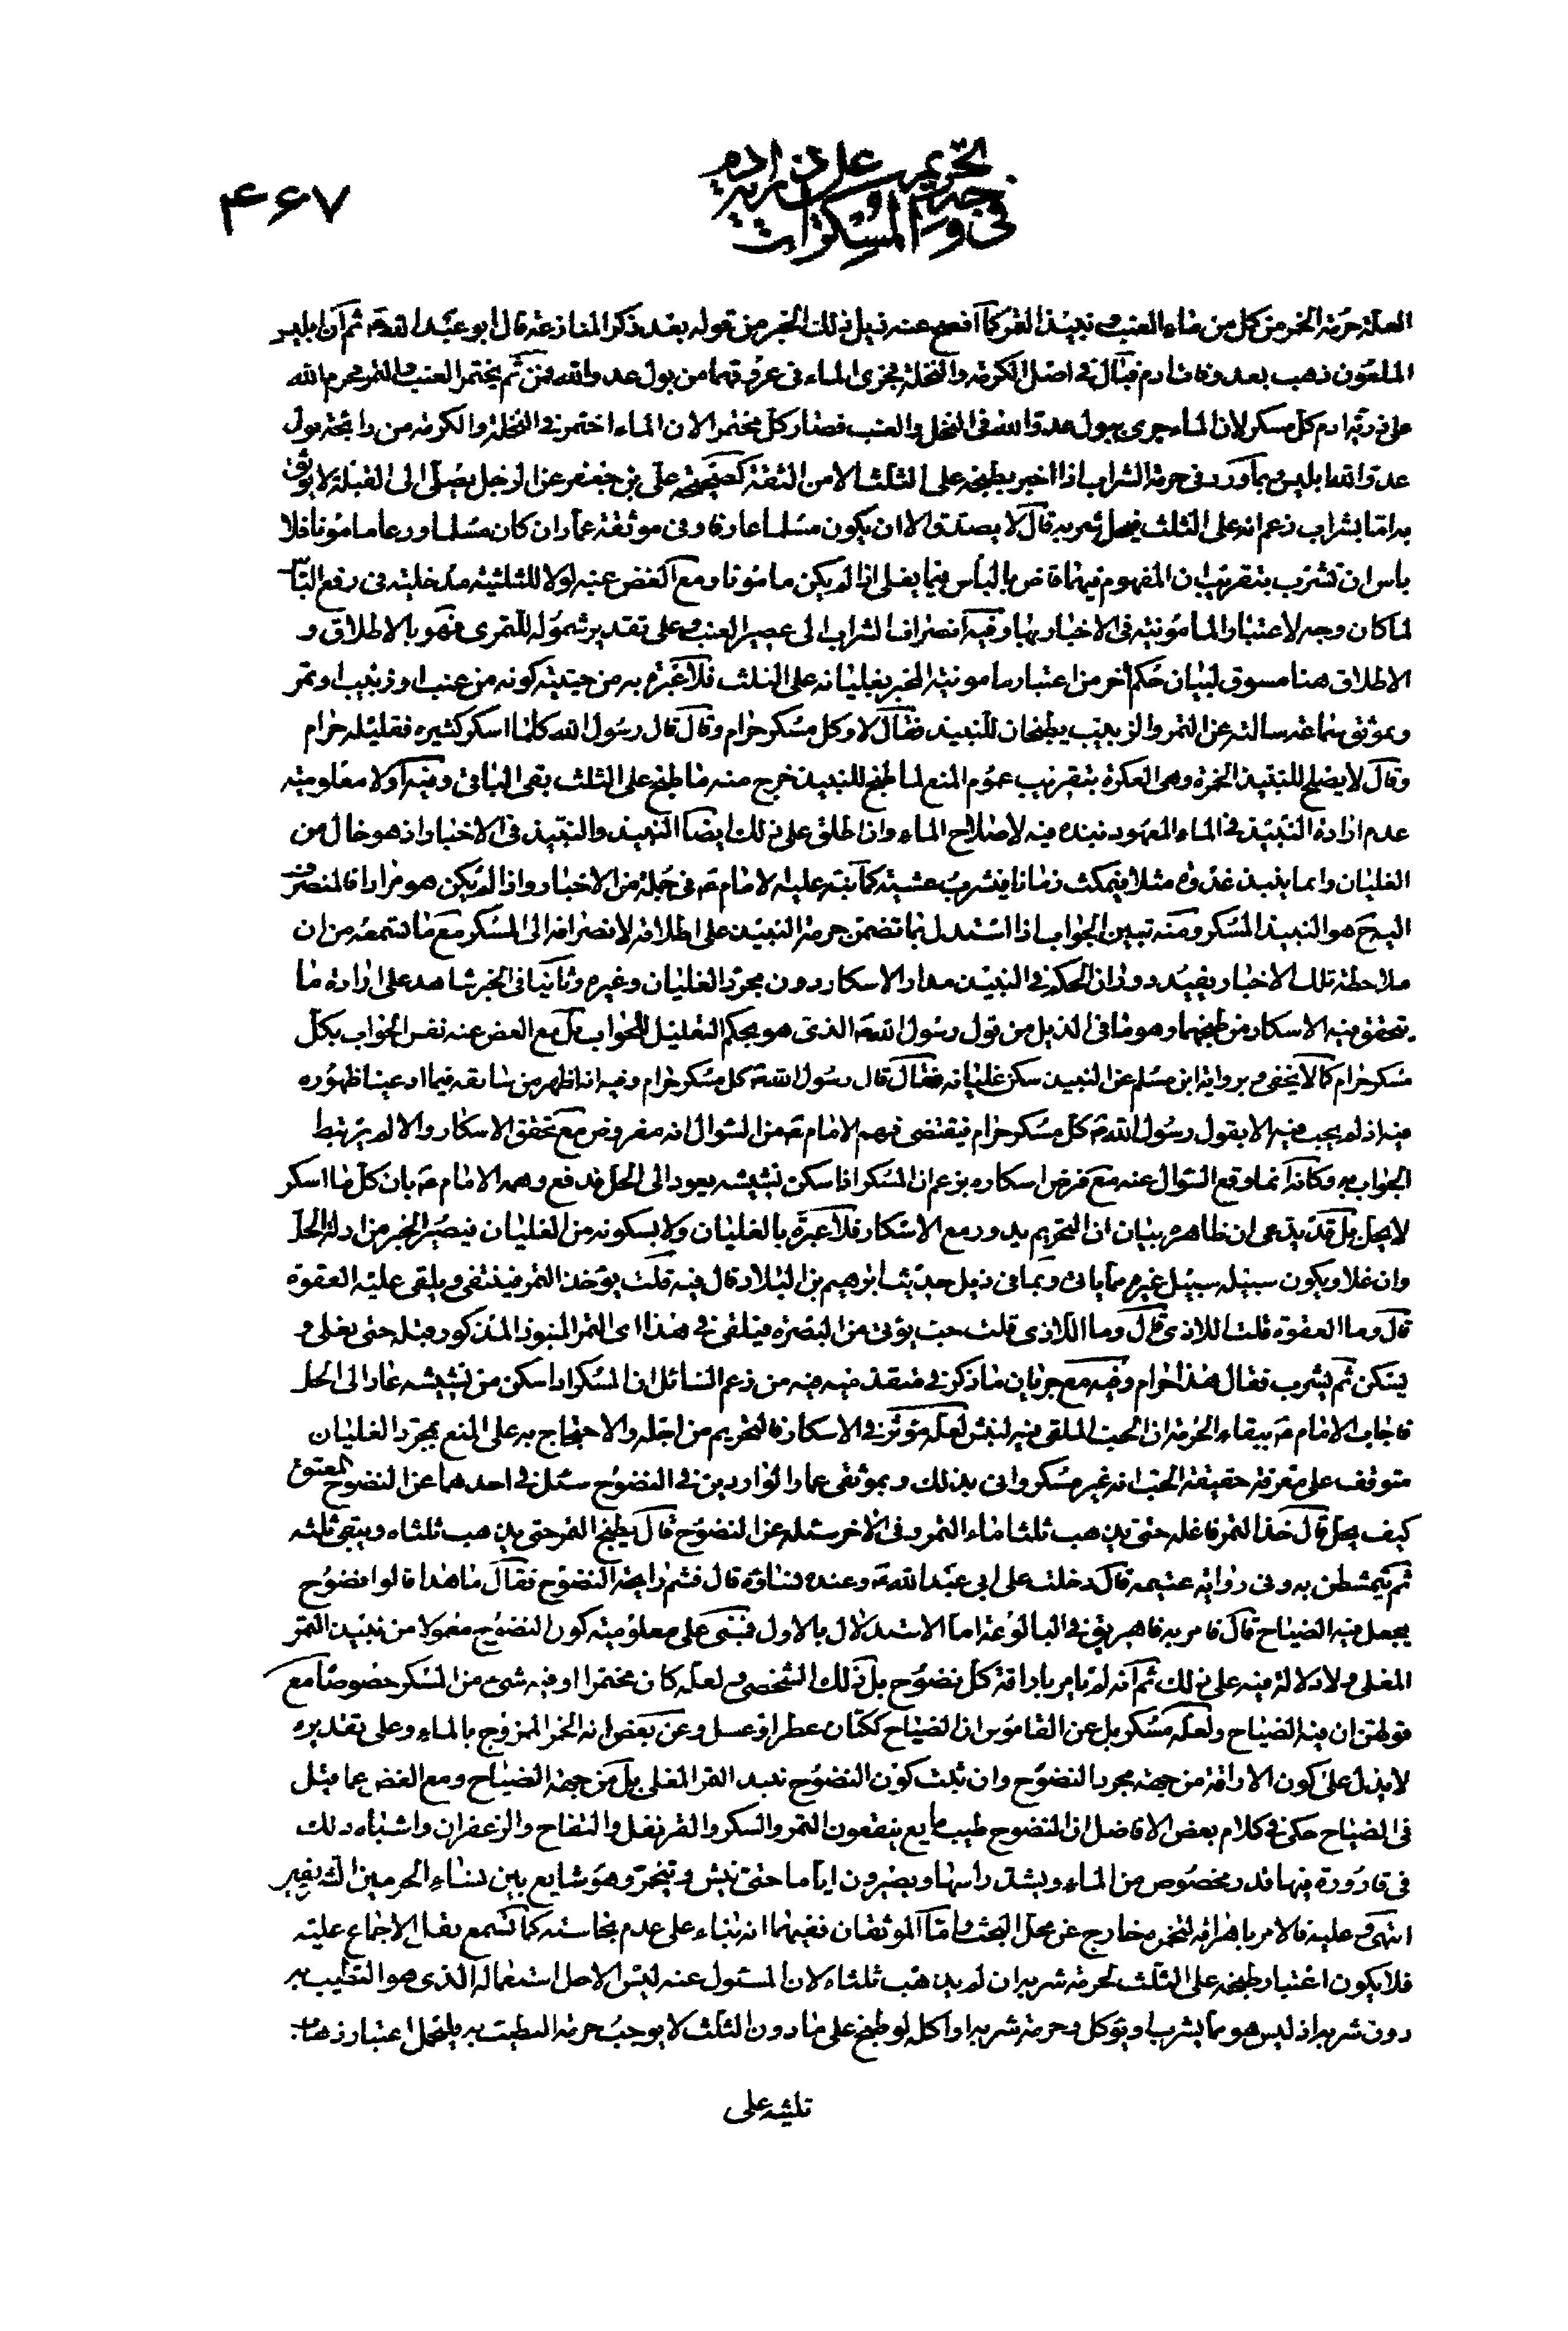 في وجه تحريم المسكرات على ذرية ادم
۴۶۷
العلة حرمة الخمر من كل من ماء العنب و نبيذ التمر كما افصح عنه ذيل ذلك الخبر من قوله بعد ذكر المنازعة قال ابو عبد الله ثم ان ابليس
الملعون ذهب بعد وفاة ادم فبال في اصل الكرمة والنخلة فجرى الماء في عروقهما من بول عدو الله فمن ثم يختمر العنب و التمر فحرم الله
على ذرية ادم كل مسكر لان الماء جرى ببول عدو الله في النخل و العنب فصار كل مختمر لان الماء اختمر في النخلة والكرمة من رائحة بول
عدو الله ابليس و بما ورد في حرمة الشراب اذا اخبر بطبخه على الثلث الا من الثقة كصحيحة على بن جعفر عن الرجل يصلى الى القبلة لا يوثق
به اتى بشراب زعم انه على الثلث فيحل شربه قال لا يصدق الا ان يكون مسلما عارفا وفى موثقة عمار ان كان مسلما ورعا مامونا فلا
باس ان تشرب بتقريب ان المفهوم فيهما قاض بالباس فيما يغلى اذا لم يكن مامونا ومع الغض عنه لولا للثلثية مدخلية في رفع الباس
لما كان وجه لاعتبار المامونية في الاخبار بها وفيه انصراف الشراب الى عصير العنب و على تقدير شموله للتمرى فهو بالاطلاق و
الاطلاق هنا مسوق لبيان حكم اخر من اعتبار مامونية المخبر بغليانه على الثلث فلا عبرة به من حيثية كونه من عنب او زبيب او تمر
وبموثق سماعة سالته عن التمر والزبيب يطبخان للنبيذ فقال لا وكل مسكر حرام وقال قال رسول الله كلما اسكر كثيره فقليله حرام
وقال لا يصلح للنبيذ الخمرة وهى العكرة بتقريب عموم المنع لما طبخ للنبيذ خرج منه ما طبخ على الثلث بقى الباقى وفيه اولا معلومية
عدم ارادة النبيذ في الماء المعهود نبذه فيه لاصلاح الماء وان اطلق على ذلك ايضا النبيذ والنبيذ في الاخبار اذ هو خال من
الغليان وانما ينبذ غدوة مثلا فيمكث زمانا فيشرب عشية كما نبه عليه الامام ع في جملة من الاخبار واذا لم يكن هو مرادا فالمنصرف
اليه ح هو النبيذ المسكر ومنه تبين الجواب اذا استدل بما تضمن حرمة النبيذ على اطلاقه لانصرافه الى المسكر مع ما ستمعه من ان
ملاحظة تلك الاخبار يفيد دوران الحكم في النبيذ مدار الاسكار دون مجرد الغليان وغيره وثانيا في الخبر شاهد على ارادة ما
يتحقق فيه الاسكار من طبخهما وهو ما فى الذيل من قول رسول الله ص الذى هو بحكم التعليل للجواب بل مع الغض عنه نفس الجواب بكل
مسكر حرام كما لا يخفى و برواية ابن مسلم عن النبيذ سكن غليانه فقال قال رسول الله ص كل مسكر حرام وفيه انه اظهر من سابقه فيما ادعينا ظهوره
فيه اذ لم يجب فيه الا بقول رسول الله ص كل مسكر حرام فيقتضى فهم الامام ع من السؤال انه مفروض مع تحقق الاسكار والا لم يرتبط
الجواب به وكانه انما وقع السؤال عنه مع فرض اسكاره بزعم ان المسكر اذا سكن نشيشه يعود الى الحل فدفع وهمه الامام ع بان كل ما اسكر
لا يحل بل قد يدعى ان ظاهره بيان ان التحريم يدور مع الاسكار فلا عبرة بالغليان ولا بسكونه من الغليان فيصير الخبر من ادلة الحل
وان غلا ويكون سبيله سبيل غيره مما ياتى و بما في ذيل حديث ابراهيم بن البلاد قال فيه قلت يؤخذ التمر فينقى و يلقى عليه العقوة
قال وما العقوة قلت اللاذى قال وما اللاذى قلت حب يؤتى من البصرة فيلقى في هذا اى التمر المنبوذ المذكور قبله حتى يغلى و
يسكن ثم يشرب فقال هذا حرام وفيه مع جريان ما ذكر في متقدميه فيه من زعم السائل ان المسكر اذا سكن من نشيشه عاد الى الحل
فاجاب الامام ع ببقاء الحرمة ان الحب الملقى فيه لنبش لعله مؤثر في الاسكار فالتحريم من اجله والاحتجاج به على المنع بمجرد الغليان
متوقف على معرفة حقيقة الحب انه غير مسكر وانى بذلك و بموثقى عمار الواردين في النضوح سئل في احدهما عن النضوح المعتق
كيف يحل قال خذ التمر فاغله حتى يذهب ثلثا ماء التمر وفى الاخر سئله عن النضوح قال يطبخ التمر حتى يذهب ثلثاه ويبقى ثلثه
ثم يتمشطن به وفى رواية عثيمة قال دخلت على ابى عبد الله ع وعنده نساؤه قال فشم رائحة النضوح فقال ما هذا قالوا نضوح
يجعل فيه الضياح قال فامر به فاهريق في البالوعة اما الاستدلال بالاول فبنى على معلومية كون النضوح معمولا من نبيذ التمر
المغلى و لا دلالة فيه على ذلك ثم انه لم يامر باراقة كل نضوح بل ذلك الشخصى و لعله كان مختمرا او فيه شىء من المسكر خصوصا مع
قولهن ان فيه الضياح ولعله مسكر بل عن القاموس ان الضياح ككتان عطر او عسل وعن بعض انه الخمر الممزوج بالماء وعلى تقديره
لا يدل على كون الاراقة من جهة مجرد النضوح وان ثبت كون النضوح نبيذ التمر المغلى بل من جهة الضياح ومع الغض عما قيل
في الضياح حكى في كلام بعض الافاضل ان النضوح طيب مايع ينقعون التمر والسكر والقرنفل والتفاح والزعفران واشباه ذلك
في قارورة فيها قدر مخصوص من الماء و يشد راسها ويصبرون اياما حتى نش و تخمر وهو شايع بين نساء الحرمين الشريفين
انتهى و عليه فالامر باهراقه لتخمره خارج عن محل البحث و اما الموثقان ففيهما انه بناء على عدم نجاسته كما تسمع نقل الاجماع عليه
فلا يكون اعتبار طبخه على الثلث لحرمة شربه ان لم يذهب ثلثاه لان المسئول عنه ليس الا حل استعماله الذى هو التطيب به
دون شربه اذ ليس هو مما يشرب او يؤكل و حرمة شربه او اكله لو طبخ على ما دون الثلث لا يوجب حرمة التطيب به بل يحتمل اعتبار ذهاب
ثلثيه على